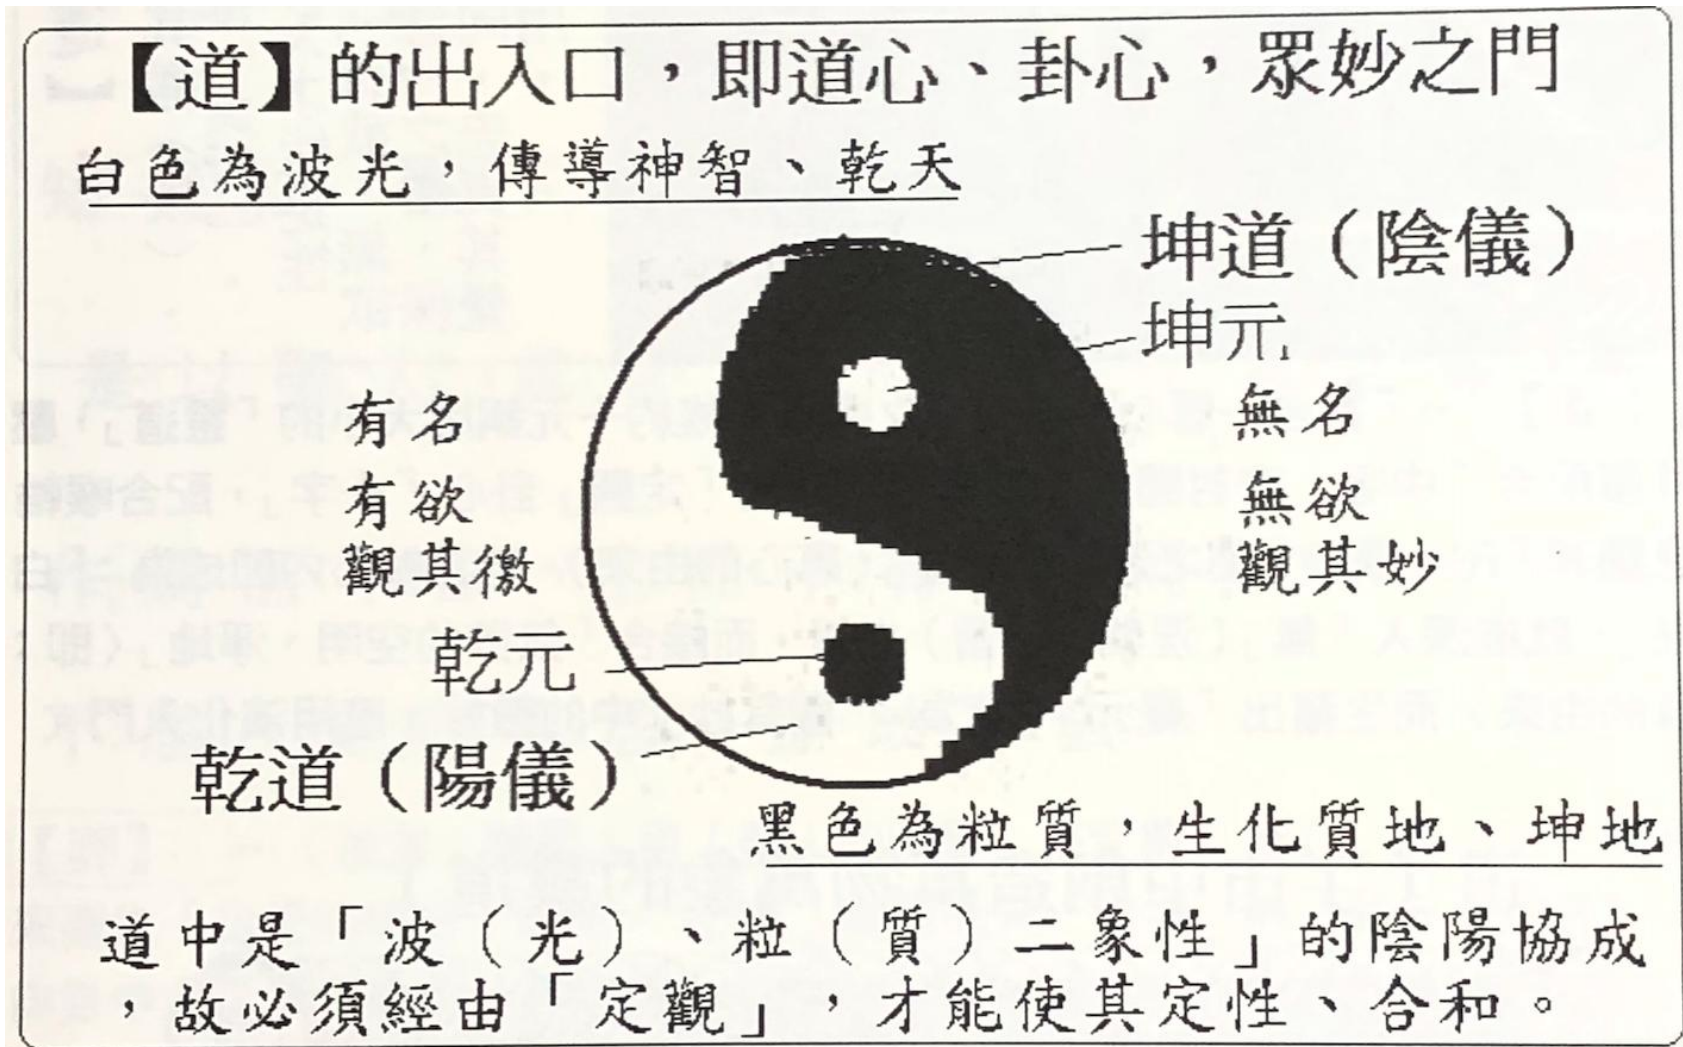 【道】的出入口，即道心、卦心，眾妙之門
白色為波光，傳導神智、乾天
坤道（陰儀）
坤元
有名
有欲
觀其徼
無名
無欲
觀其妙
乾元
乾道（陽儀）
黑色為粒質，生化質地、坤地
道中是「波（光）、粒（質）二象性」的陰陽協成
，故必須經由「定觀」，才能使其定性、合和。